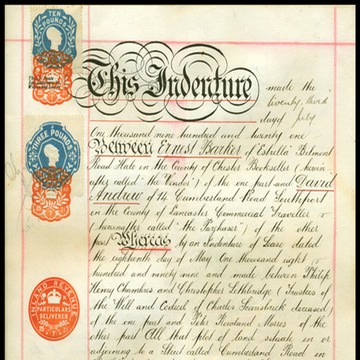 TEN
POUNDS
This Indenture made the
twenty third
day of July
One thousand nine hundred and twenty one
Between Ernest Barker of Estrella Belmont
Road Hale in the County of Chester Bookseller (herein
after called "the Vendor") of the one part and David
Andrew of 74 Cumberland Road Southport
in the County of Lancaster Commercial Traveller
(hereinafter called "the Purchaser") of the other
part Whereas by an Indenture of Lease dated
the eighteenth day of May One thousand eight
hundred and ninety nine and made between Philip
Henry Chambres and Christopher (Trustees
of the Will and Codicil of Charles deceased)
of the one part and John Rowland Morris of the
other part All that plot of land situate in or
adjoining to a Street called Cumberland Road in
THREE POUNDS
INLAND REVENUE
PARTICULARS
DELIVERED